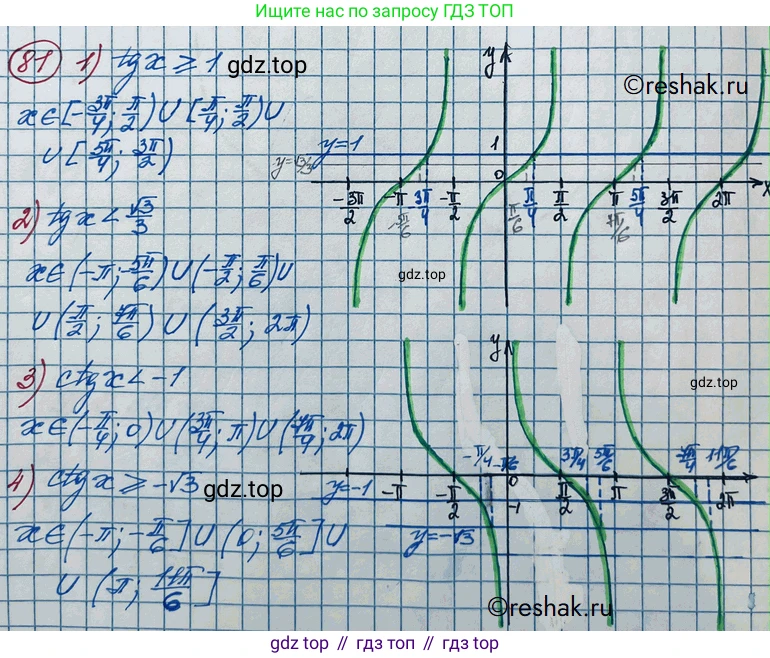 Ищите нас по запросу ГДЗ ТОП
81 1) tgx ≥ 1 gdz.top
x∈[-3π/4; π/2) ∪ [π/4; π/2) ∪
∪ [5π/4; 3π/2)
2) tgx < √3/3
x∈(-π; -5π/6) ∪ (-π/2; π/6) ∪
∪ (π/2; 7π/6) ∪ (3π/2; 2π)
3) ctgx < -1
x∈(-π/4; 0) ∪ (3π/4; π) ∪ (7π/4; 2π)
4) ctgx ≥ -√3 gdz.top
x∈(-π; -π/6] ∪ (0; 5π/6] ∪
∪ (π; 11π/6]
y
©reshak.ru
y=1
1
y=√3/3
0
x
-3π/2 -π 3π/4 -π/2 π/6 π/4 π/2 π 5π/4 3π/2 2π
-5π/6 7π/6
gdz.top
y
gdz.top
-π/4 -π/6 3π/4 5π/6 7π/4 11π/6
y=-1 -π -π/2 0 π/2 π 3π/2 2π
-1
y=-√3
©reshak.ru
gdz.top // гдз топ // gdz.top